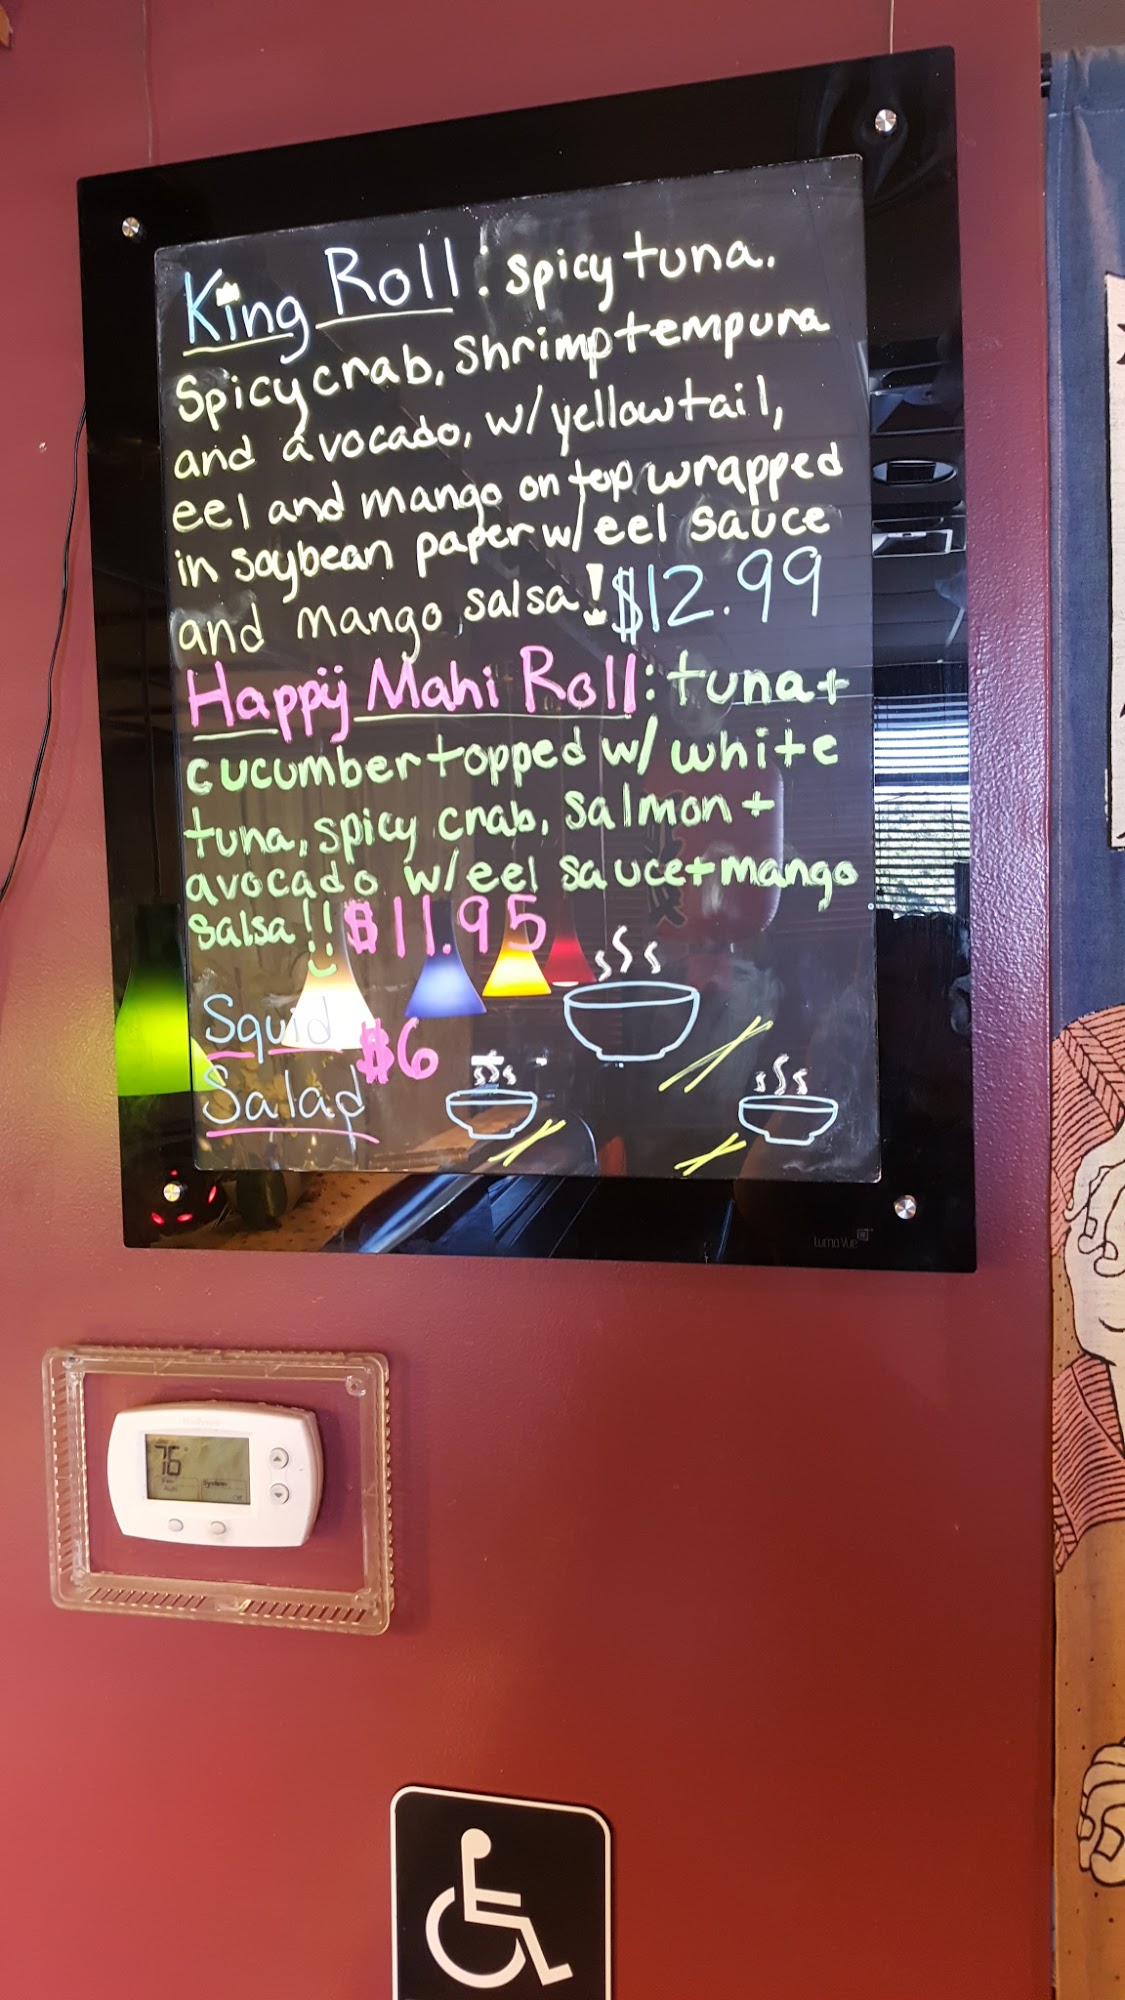 King Roll: spicy tuna.
Spicy crab, Shrimp tempura
and avocado, w/yellowtail,
eel and mango on top wrapped
in soybean paper w/eel sauce
and mango salsa! $12.99
Happy Mahi Roll: tuna+
cucumber topped w/ white
tuna, spicy crab, salmon+
avocado w/eel sauce+mango
salsa!! $11.95
Squid
Salad $6
Luma Vue
76°
Fan System
Auto